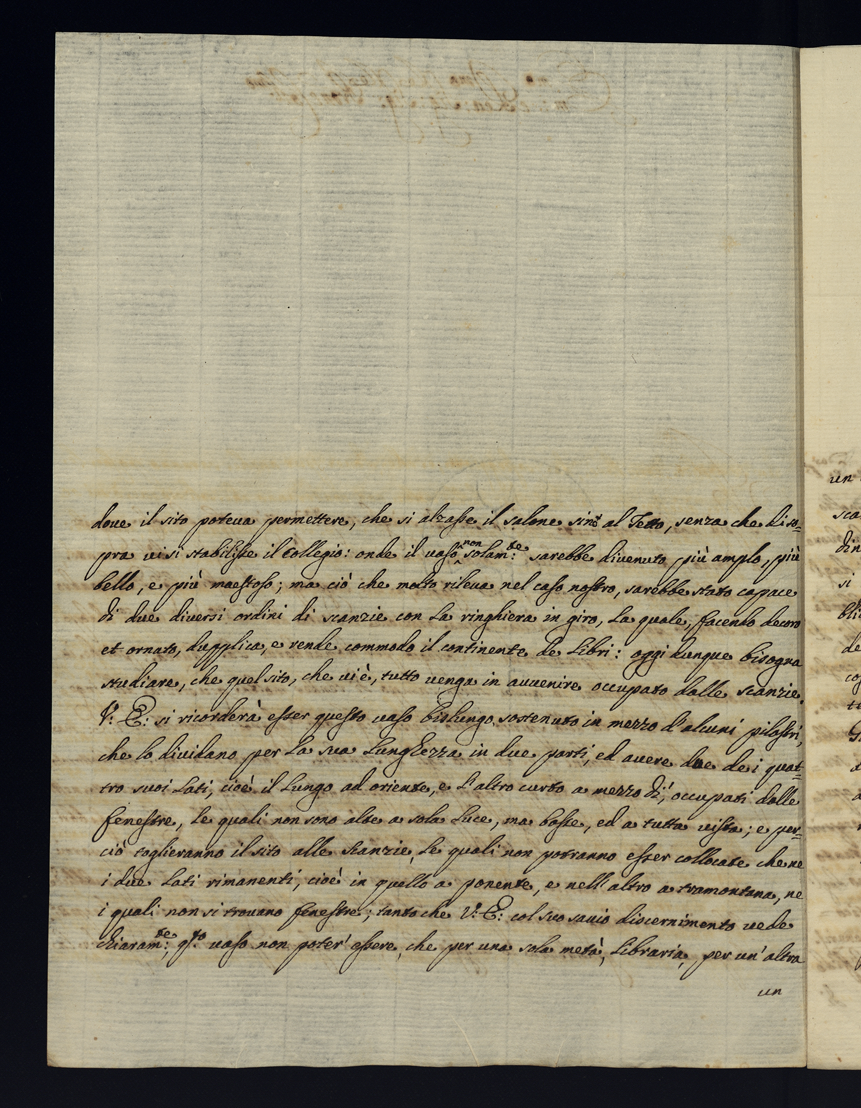 dove il sito poteva permettere, che si alzasse il salone sino al Tetto, senza che di so-
pra vi si stabilisse il Collegio: onde il vaso non solam:te sarebbe divenuto più amplo, più
bello, e più maestoso; ma ciò che molto rileva nel caso nostro, sarebbe stato capace
di due diversi ordini di scanzie con la ringhiera in giro, la quale, facendo decoro
et ornato, dupplica, e rende commodo il continente de Libri: oggi dunque bisogna
studiare, che quel sito, che vi è, tutto venga in avvenire occupato dalle scanzie.
V: E: si ricorderà esser questo vaso bislungo, sostenuto in mezzo d'alcuni pilastri,
che lo dividano per la sua Lunghezza in due parti, ed avere due de i quat-
tro suoi Lati, cioè il Lungo ad oriente, e l'altro curto a mezzo dì, occupati dalle
fenestre, le quali non sono alte a sola Luce, ma basse, ed a tutta vista; e per-
ciò toglieranno il sito alle scanzie, le quali non potranno esser collocate che ne
i due Lati rimanenti, cioè in quello a ponente, e nell'altro a tramontana, ne
i quali non si trovano fenestre; tanto che V: E: col suo savio discernimento vede
chiaram:te, q:to vaso non poter' essere, che per una sola metà, Libraria, per un'altra
un